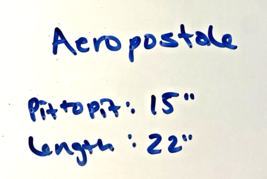 Aeropostale
Pit to pit: 15"
Length: 22"